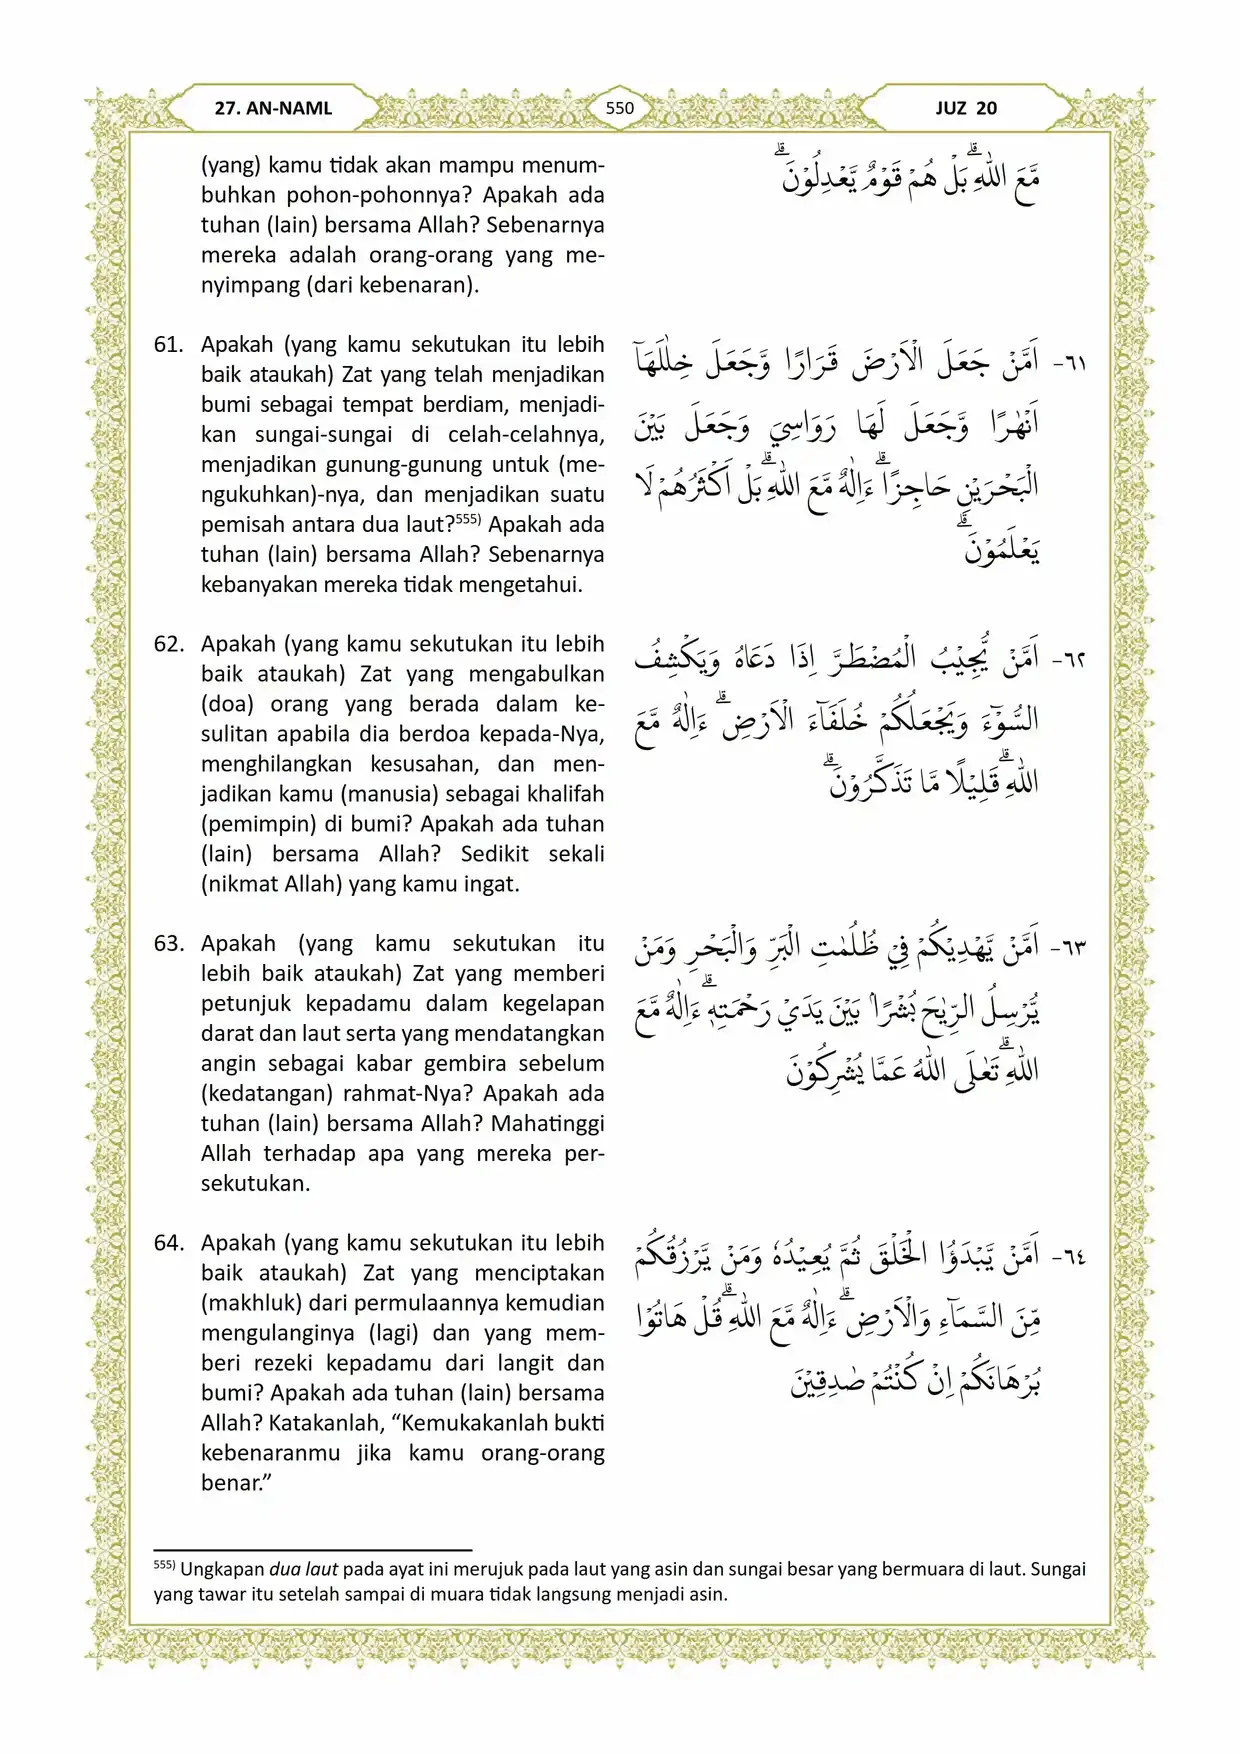 27. AN-NAML
550
JUZ 20
(yang) kamu tidak akan mampu menum-
buhkan pohon-pohonnya? Apakah ada
tuhan (lain) bersama Allah? Sebenarnya
mereka adalah orang-orang yang me-
nyimpang (dari kebenaran).
مَّعَ اللّٰهِ ۗبَلْ هُمْ قَوْمٌ يَّعْدِلُوْنَ ۗ
61. Apakah (yang kamu sekutukan itu lebih
baik ataukah) Zat yang telah menjadikan
bumi sebagai tempat berdiam, menjadi-
kan sungai-sungai di celah-celahnya,
menjadikan gunung-gunung untuk (me-
ngukuhkan)-nya, dan menjadikan suatu
pemisah antara dua laut?⁵⁵⁵⁾ Apakah ada
tuhan (lain) bersama Allah? Sebenarnya
kebanyakan mereka tidak mengetahui.
٦١- اَمَّنْ جَعَلَ الْاَرْضَ قَرَارًا وَّجَعَلَ خِلٰلَهَآ
اَنْهٰرًا وَّجَعَلَ لَهَا رَوَاسِيَ وَجَعَلَ بَيْنَ
الْبَحْرَيْنِ حَاجِزًاۗ ءَاِلٰهٌ مَّعَ اللّٰهِ ۗبَلْ اَكْثَرُهُمْ لَا
يَعْلَمُوْنَ ۗ
62. Apakah (yang kamu sekutukan itu lebih
baik ataukah) Zat yang mengabulkan
(doa) orang yang berada dalam ke-
sulitan apabila dia berdoa kepada-Nya,
menghilangkan kesusahan, dan men-
jadikan kamu (manusia) sebagai khalifah
(pemimpin) di bumi? Apakah ada tuhan
(lain) bersama Allah? Sedikit sekali
(nikmat Allah) yang kamu ingat.
٦٢- اَمَّنْ يُّجِيْبُ الْمُضْطَرَّ اِذَا دَعَاهُ وَيَكْشِفُ
السُّوْۤءَ وَيَجْعَلُكُمْ خُلَفَاۤءَ الْاَرْضِۗ ءَاِلٰهٌ مَّعَ
اللّٰهِ ۗقَلِيْلًا مَّا تَذَكَّرُوْنَۗ
63. Apakah (yang kamu sekutukan itu
lebih baik ataukah) Zat yang memberi
petunjuk kepadamu dalam kegelapan
darat dan laut serta yang mendatangkan
angin sebagai kabar gembira sebelum
(kedatangan) rahmat-Nya? Apakah ada
tuhan (lain) bersama Allah? Mahatinggi
Allah terhadap apa yang mereka per-
sekutukan.
٦٣- اَمَّنْ يَّهْدِيْكُمْ فِيْ ظُلُمٰتِ الْبَرِّ وَالْبَحْرِ وَمَنْ
يُّرْسِلُ الرِّيٰحَ بُشْرًا ۢ بَيْنَ يَدَيْ رَحْمَتِهٖۗ ءَاِلٰهٌ مَّعَ
اللّٰهِ ۗتَعٰلَى اللّٰهُ عَمَّا يُشْرِكُوْنَ
64. Apakah (yang kamu sekutukan itu lebih
baik ataukah) Zat yang menciptakan
(makhluk) dari permulaannya kemudian
mengulanginya (lagi) dan yang mem-
beri rezeki kepadamu dari langit dan
bumi? Apakah ada tuhan (lain) bersama
Allah? Katakanlah, “Kemukakanlah bukti
kebenaranmu jika kamu orang-orang
benar.”
٦٤- اَمَّنْ يَّبْدَؤُا الْخَلْقَ ثُمَّ يُعِيْدُهٗ وَمَنْ يَّرْزُقُكُمْ
مِّنَ السَّمَاۤءِ وَالْاَرْضِۗ ءَاِلٰهٌ مَّعَ اللّٰهِ ۗقُلْ هَاتُوْا
بُرْهَانَكُمْ اِنْ كُنْتُمْ صٰدِقِيْنَ
⁵⁵⁵⁾ Ungkapan dua laut pada ayat ini merujuk pada laut yang asin dan sungai besar yang bermuara di laut. Sungai
yang tawar itu setelah sampai di muara tidak langsung menjadi asin.